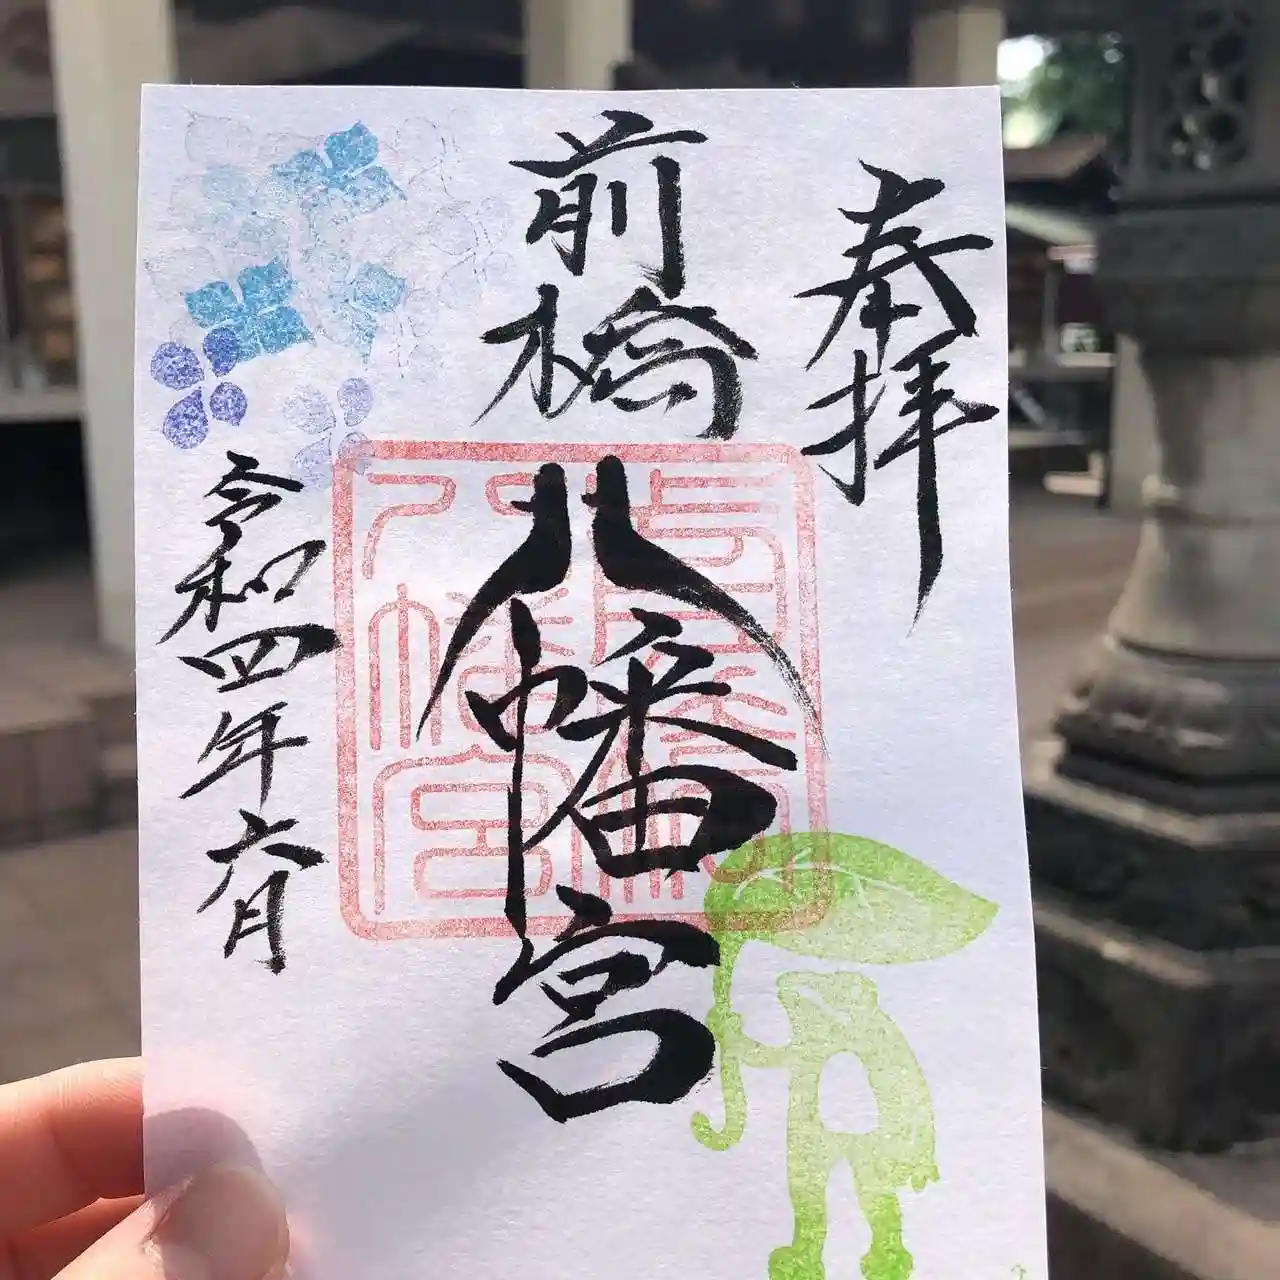 奉拝
前橋八幡宮
令和四年六月
八幡宮